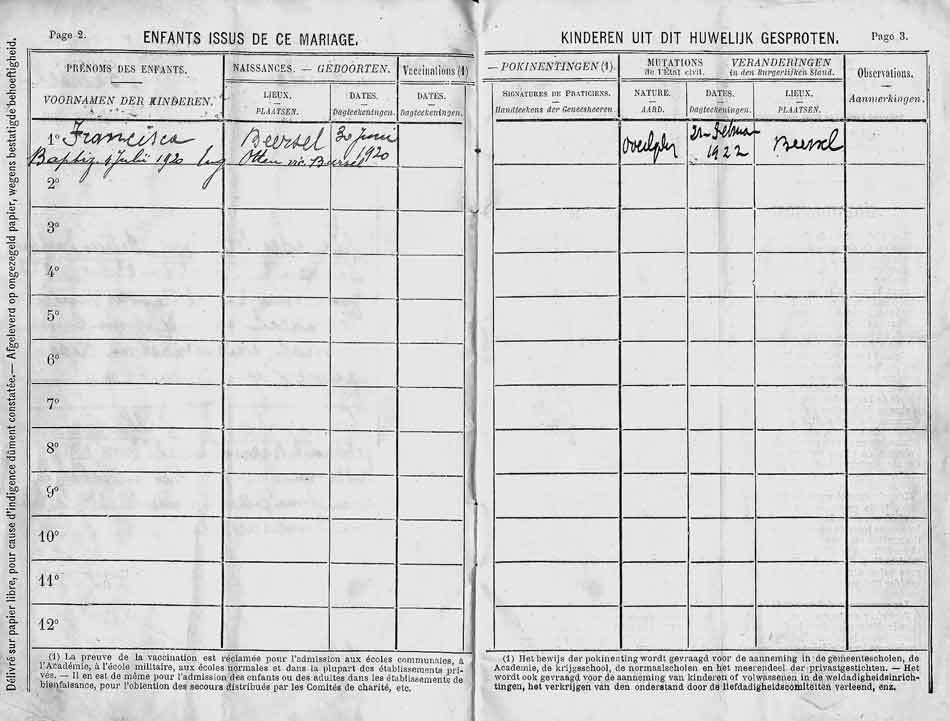 Délivré sur papier libre, pour cause d'indigence dûment constatée. — Afgeleverd op ongezegeld papier, wegens bestatigde behoeftigheid.
Page 2.
ENFANTS ISSUS DE CE MARIAGE.
PRÉNOMS DES ENFANTS.
VOORNAMEN DER KINDEREN.
NAISSANCES. — GEBOORTEN.
LIEUX.
PLAATSEN.
DATES.
Dagteekeningen.
Vaccinations (1)
DATES.
Dagteekeningen.
1° Francisca Beersel 30 juni
Baptiz. 1 Juli 1920 Beersel 1920
2°
3°
4°
5°
6°
7°
8°
9°
10°
11°
12°
(1) La preuve de la vaccination est réclamée pour l'admission aux écoles communales, à
l'Académie, à l'école militaire, aux écoles normales et dans la plupart des établissements pri-
vés. — Il en est de même pour l'admission des enfants ou des adultes dans les établissements de
bienfaisance, pour l'obtention des secours distribués par les Comités de charité, etc.
KINDEREN UIT DIT HUWELIJK GESPROTEN.
Page 3.
— POKINENTINGEN (1).
SIGNATURES DE PRATICIENS.
Handteekens der Geneesheeren.
MUTATIONS
de l'État civil.
VERANDERINGEN
in den Burgerlijken Stand.
NATURE.
AARD.
DATES.
Dagteekeningen.
LIEUX.
PLAATSEN.
Observations.
Aanmerkingen.
1922 Beersel
(1) Het bewijs der pokinenting wordt gevraagd voor de aanneming in de gemeentescholen, de
Academie, de krijgsschool, de normaalscholen en het meerendeel der privaatgestichten. — Het
wordt ook gevraagd voor de aanneming van kinderen of volwassenen in de weldadigheidsinrich-
tingen, het verkrijgen van den onderstand door de liefdadigheidscomiteiten verleend, enz.